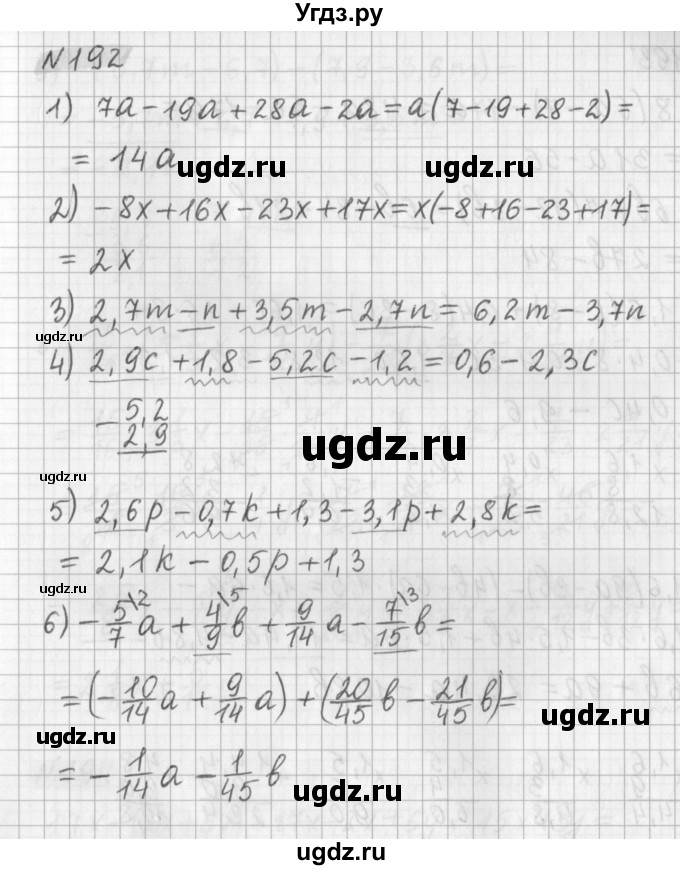 Угдз.ру
N192
1) 7a-19a+28a-2a=a(7-19+28-2)=
=14a
ugdz.ru ugdz.ru
2) -8x+16x-23x+17x=x(-8+16-23+17)=
=2x
ugdz.ru
3) 2,7m-n+3,5m-2,7n=6,2m-3,7n
4) 2,9c+1,8-5,2c-1,2=0,6-2,3c
- 5,2
2,9
ugdz.ru
ugdz.ru
5) 2,6p-0,7k+1,3-3,1p+2,8k=
=2,1k-0,5p+1,3
ugdz.ru
6) -5/7\2 a + 4/9\5 в + 9/14 a - 7/15\3 в =
=(-10/14 a + 9/14 a)+(20/45 в - 21/45 в)=
ugdz.ru ugdz.ru
= -1/14 a - 1/45 в
ugdz.ru
ugdz.ru